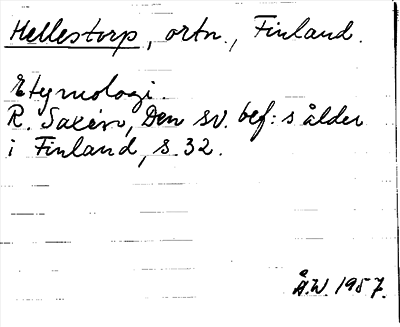 Hellestorp, ortn., Finland.
Etymologi.
R. Saxén, Den sv. bef:s ålder
i Finland, s. 32.
Å.W. 1957.